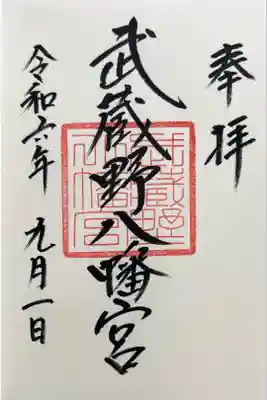 奉拝
武蔵野八幡宮
令和六年 九月一日